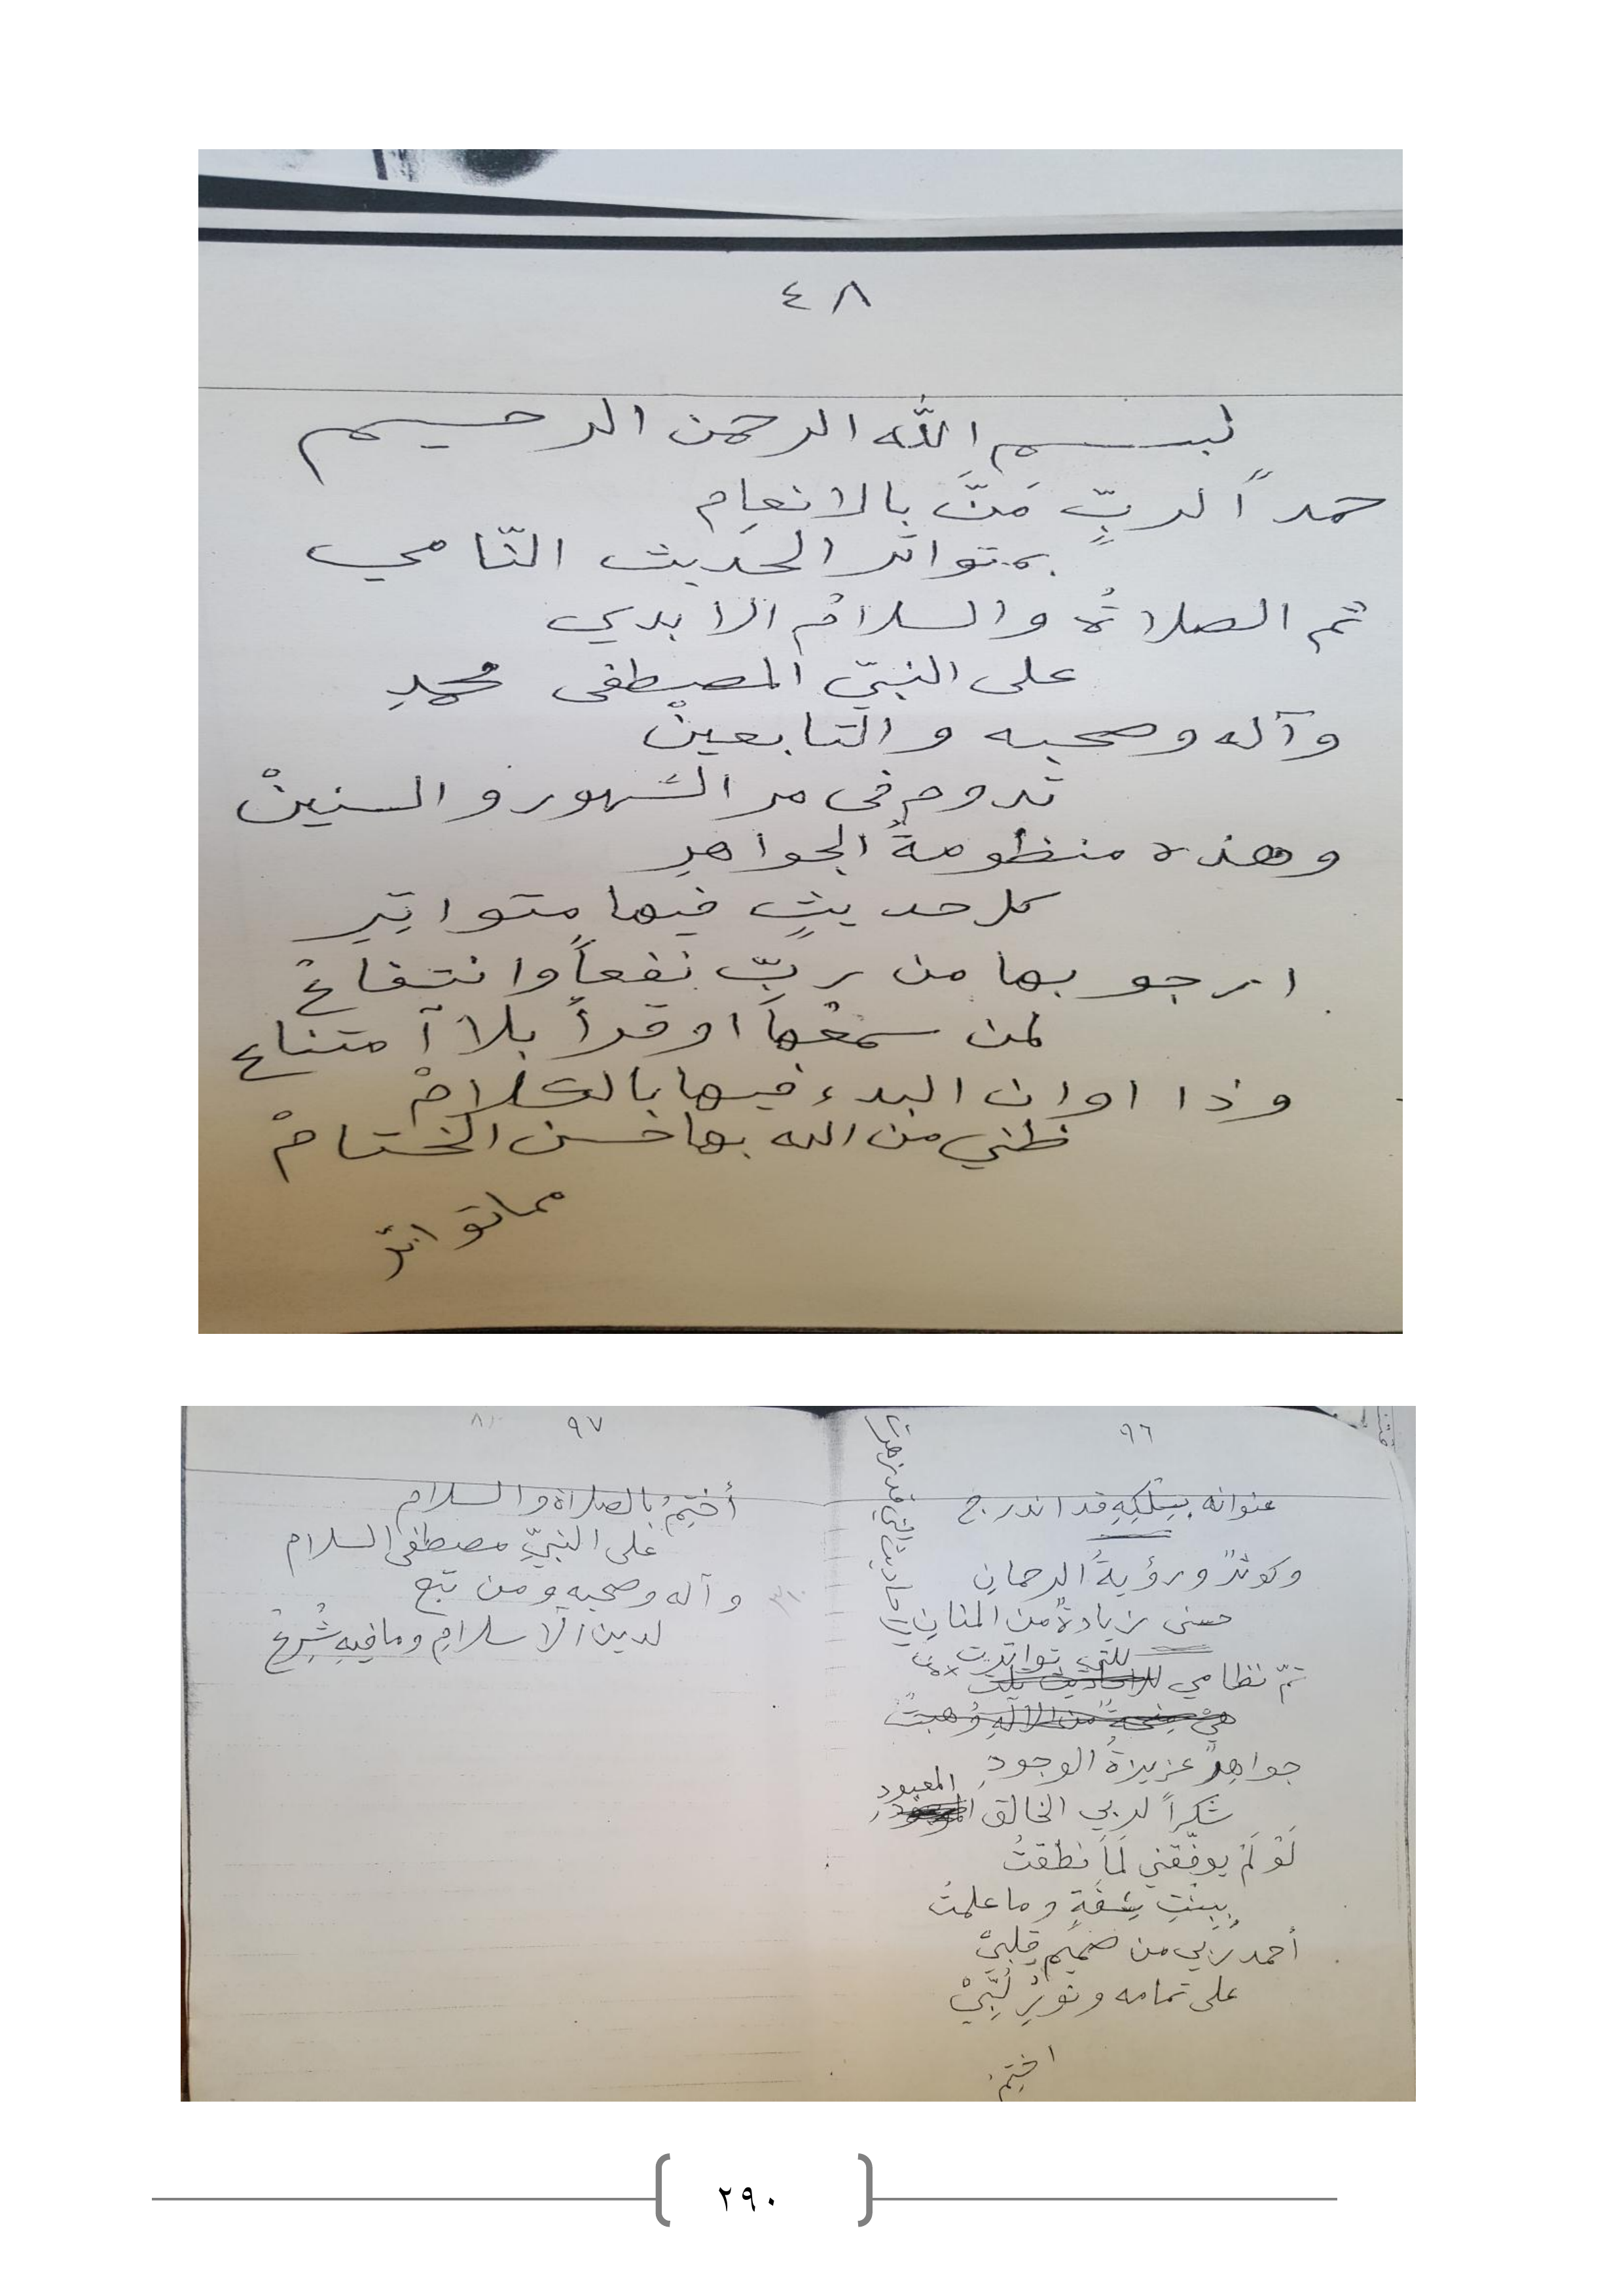 ٤٨
بسم الله الرحمن الرحيم
حمداً لربٍّ مَنَّ بالانعام
بمتواتر الحديث النّامي
ثم الصلاةُ والسلامُ الابدي
على النبيّ المصطفى محمدِ
وآله وصحبه والتابعينْ
تدوم فى مر الشهور والسنينْ
وهذه منظومةُ الجواهرِ
كل حديثٍ فيها متواترِ
ارجو بها من ربّ نفعاً وانتفاعْ
لمن سمعْها او قرأ بلا آمتناع
وذا اوان البدء فيها بالكلامْ
ظني من الله بها حسن الختامْ
مما تواتر
٩٦
عنوانه بسِلكِهِ قد اندرج
وكوثرٌ ورؤيةُ الرحمانِ
حسنى زيادةٌ من المنانِ
للتي تواترت
تمّ نظامي للاحاديث
هي من الالهِ وُهبتْ
جواهرٌ عزيزةُ الوجودِ
المعبودِ
شكراً لربي الخالق
لَوْ لَمْ يوفّقني لَمَا نطقتُ
ببِنْتِ شفةٍ وما علمتُ
أحمد ربي من صميم قلبيْ
على تمامه ونورِ لُبّيْ
اختم
٩٧
أختِمُ بالصلاة والسلام
على النبيِّ مصطفى السلام
وآله وصحبه ومن تبع
لدين الاسلامِ وما فيهِ شُرِعْ
٢٩٠